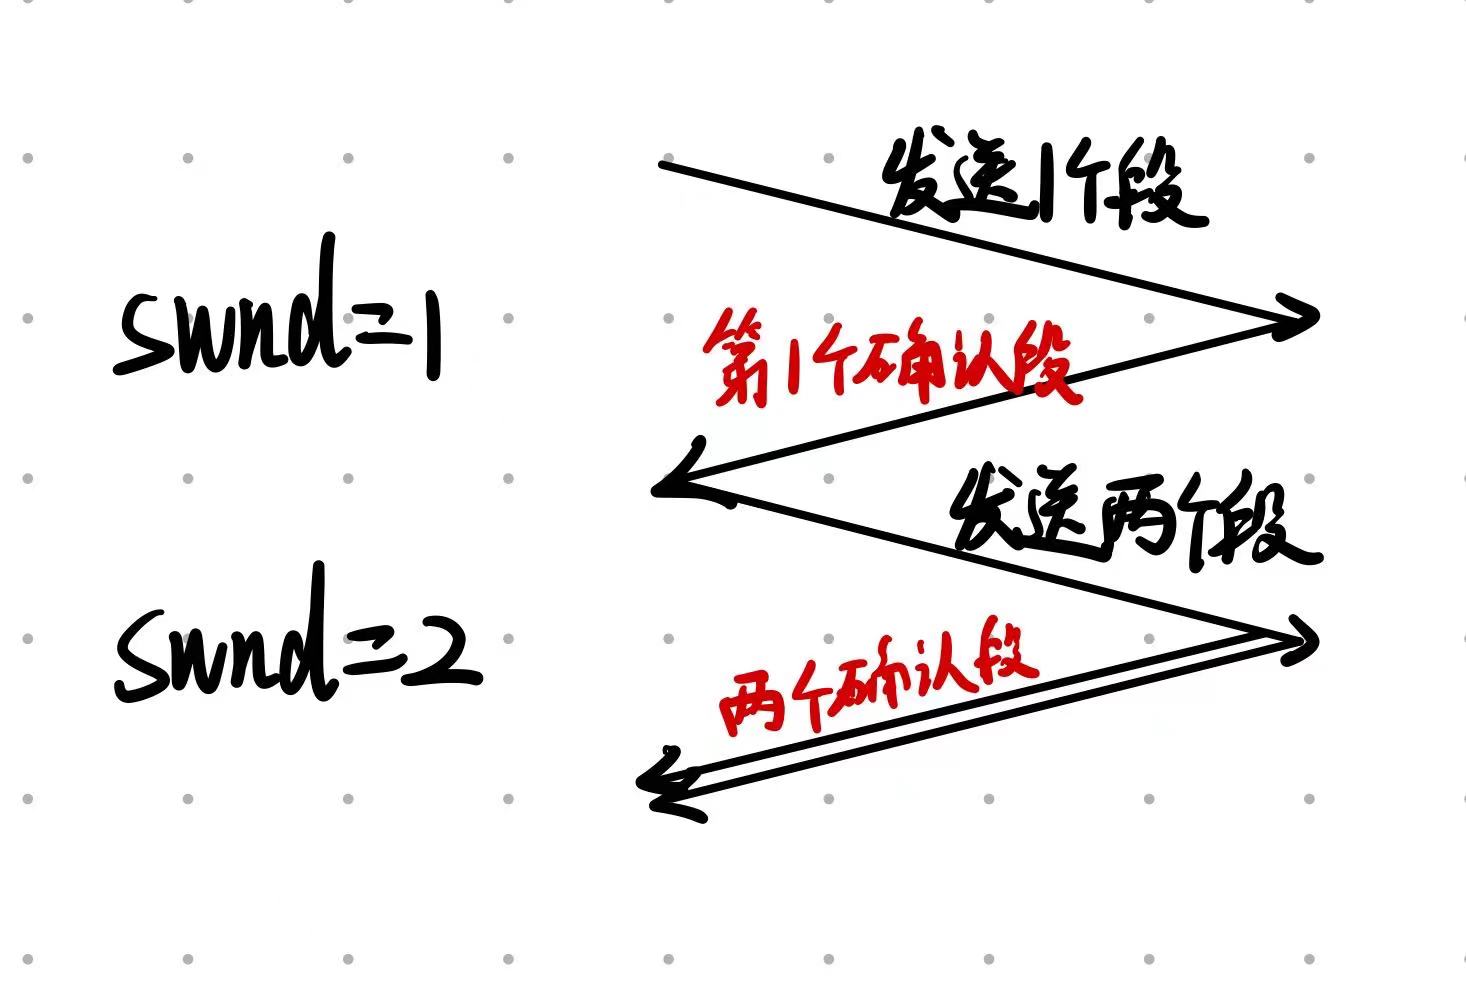 发送1个段
swnd=1
第1个确认段
发送两个段
swnd=2
两个确认段